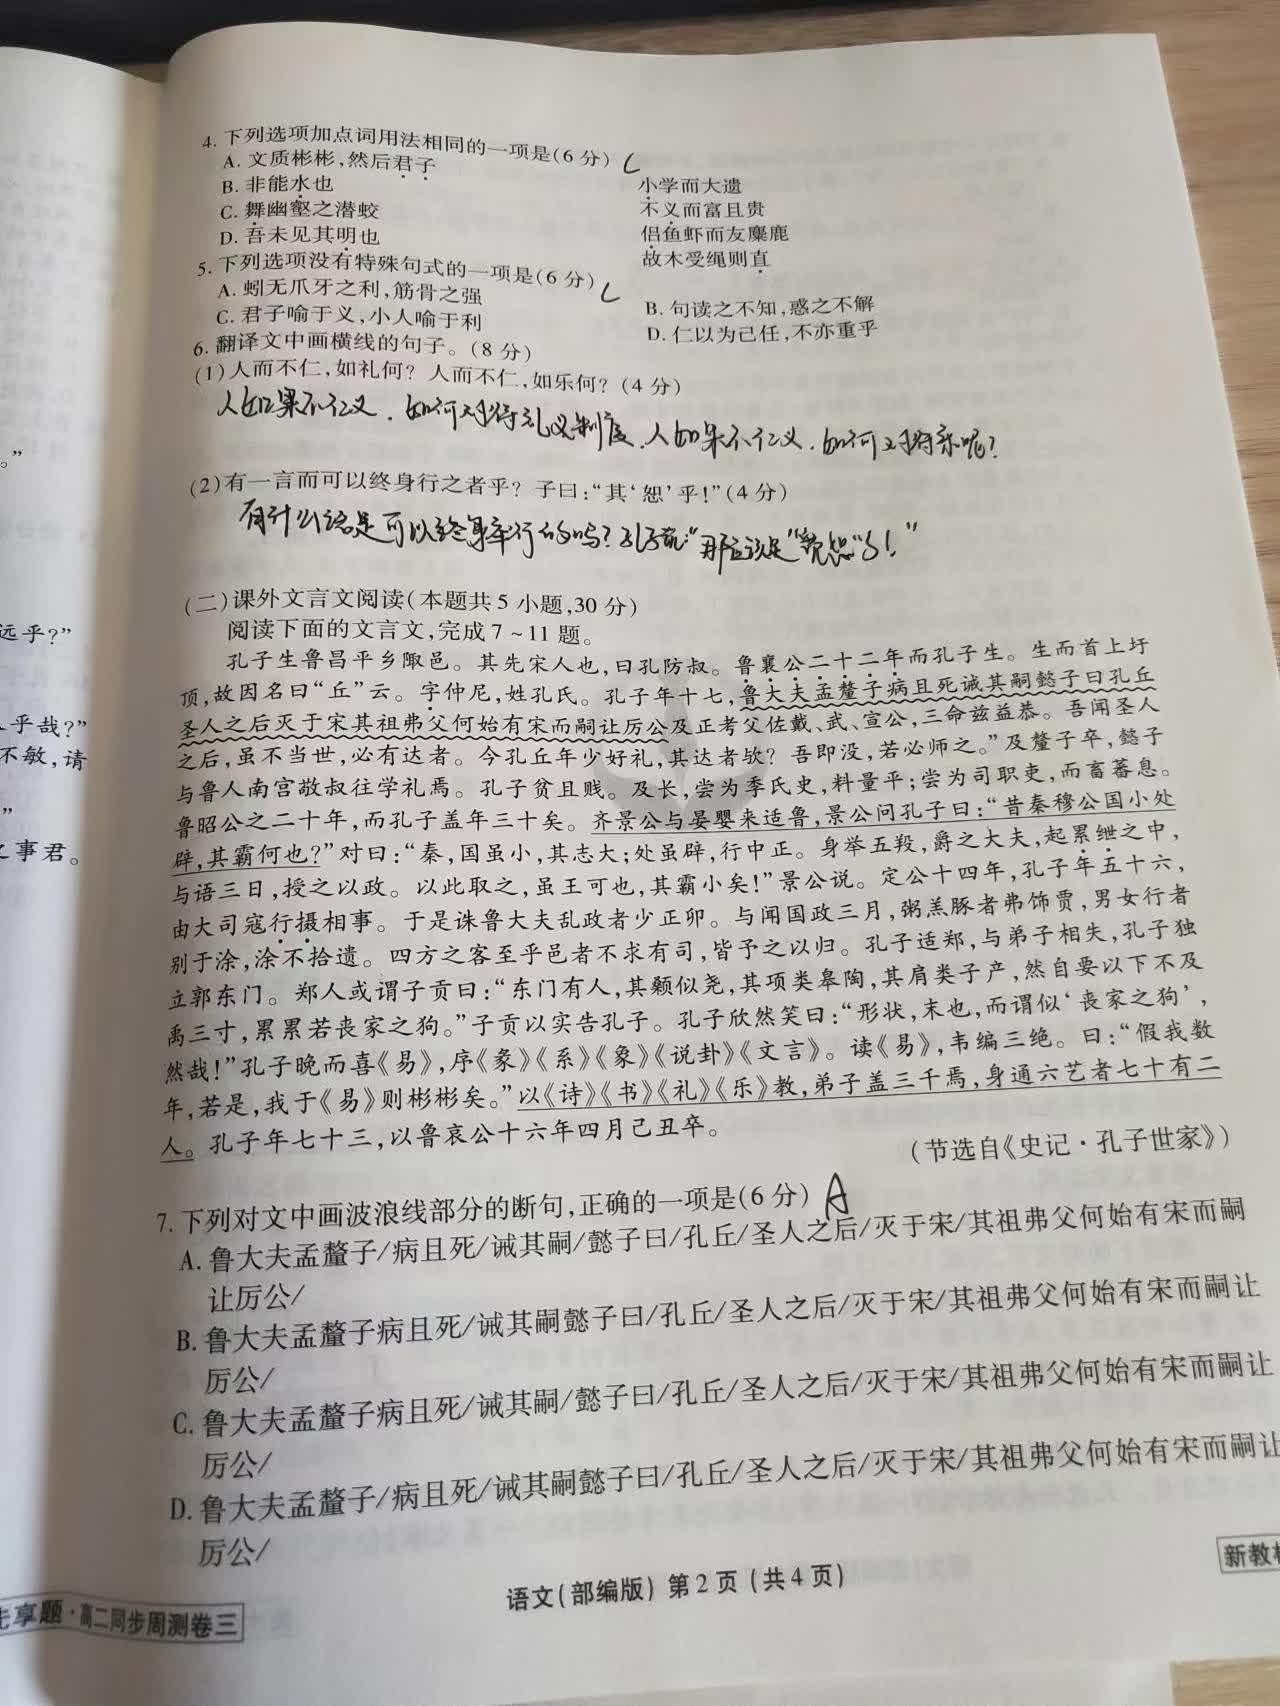 4. 下列选项加点词用法相同的一项是(6分) C
A. 文质彬彬,然后君子 小学而大遗
B. 非能水也 不义而富且贵
C. 舞幽壑之潜蛟 侣鱼虾而友麋鹿
D. 吾未见其明也 故木受绳则直
5. 下列选项没有特殊句式的一项是(6分) C
A. 蚓无爪牙之利,筋骨之强 B. 句读之不知,惑之不解
C. 君子喻于义,小人喻于利 D. 仁以为己任,不亦重乎
6. 翻译文中画横线的句子。(8分)
(1)人而不仁,如礼何?人而不仁,如乐何?(4分)
人如果不仁义,如何对待礼义制度,人如果不仁义,如何对待乐呢?
(2)有一言而可以终身行之者乎?子曰:“其‘恕’乎!”(4分)
有什么话是可以终身奉行的吗?孔子说:“那应该是“宽恕”了!”
(二)课外文言文阅读(本题共5小题,30分)
阅读下面的文言文,完成7~11题。
孔子生鲁昌平乡陬邑。其先宋人也,曰孔防叔。鲁襄公二十二年而孔子生。生而首上圩
顶,故因名曰“丘”云。字仲尼,姓孔氏。孔子年十七,鲁大夫孟釐子病且死诫其嗣懿子曰孔丘
圣人之后灭于宋其祖弗父何始有宋而嗣让厉公及正考父佐戴、武、宣公,三命兹益恭。吾闻圣人
之后,虽不当世,必有达者。今孔丘年少好礼,其达者欤?吾即没,若必师之。”及釐子卒,懿子
与鲁人南宫敬叔往学礼焉。孔子贫且贱。及长,尝为季氏史,料量平;尝为司职吏,而畜蕃息。
鲁昭公之二十年,而孔子盖年三十矣。齐景公与晏婴来适鲁,景公问孔子曰:“昔秦穆公国小处
辟,其霸何也?”对曰:“秦,国虽小,其志大;处虽辟,行中正。身举五羖,爵之大夫,起累绁之中,
与语三日,授之以政。以此取之,虽王可也,其霸小矣!”景公说。定公十四年,孔子年五十六,
由大司寇行摄相事。于是诛鲁大夫乱政者少正卯。与闻国政三月,粥羔豚者弗饰贾,男女行者
别于涂,涂不拾遗。四方之客至乎邑者不求有司,皆予之以归。孔子适郑,与弟子相失,孔子独
立郭东门。郑人或谓子贡曰:“东门有人,其颡似尧,其项类皋陶,其肩类子产,然自要以下不及
禹三寸,累累若丧家之狗。”子贡以实告孔子。孔子欣然笑曰:“形状,末也,而谓似‘丧家之狗’,
然哉!”孔子晚而喜《易》,序《彖》《系》《象》《说卦》《文言》。读《易》,韦编三绝。曰:“假我数
年,若是,我于《易》则彬彬矣。”以《诗》《书》《礼》《乐》教,弟子盖三千焉,身通六艺者七十有二
人。孔子年七十三,以鲁哀公十六年四月己丑卒。
(节选自《史记·孔子世家》)
7. 下列对文中画波浪线部分的断句,正确的一项是(6分) A
A. 鲁大夫孟釐子/病且死/诫其嗣/懿子曰/孔丘/圣人之后/灭于宋/其祖弗父何始有宋而嗣
让厉公/
B. 鲁大夫孟釐子病且死/诫其嗣懿子曰/孔丘/圣人之后/灭于宋/其祖弗父何始有宋而嗣让
厉公/
C. 鲁大夫孟釐子病且死/诫其嗣/懿子曰/孔丘/圣人之后/灭于宋/其祖弗父何始有宋而嗣让
厉公/
D. 鲁大夫孟釐子/病且死/诫其嗣懿子曰/孔丘/圣人之后/灭于宋/其祖弗父何始有宋而嗣让
厉公/
语文(部编版) 第2页(共4页)
新教材
先享题·高二同步周测卷三
。”
远乎?”
乎哉?”
不敏,请
”
之事君。